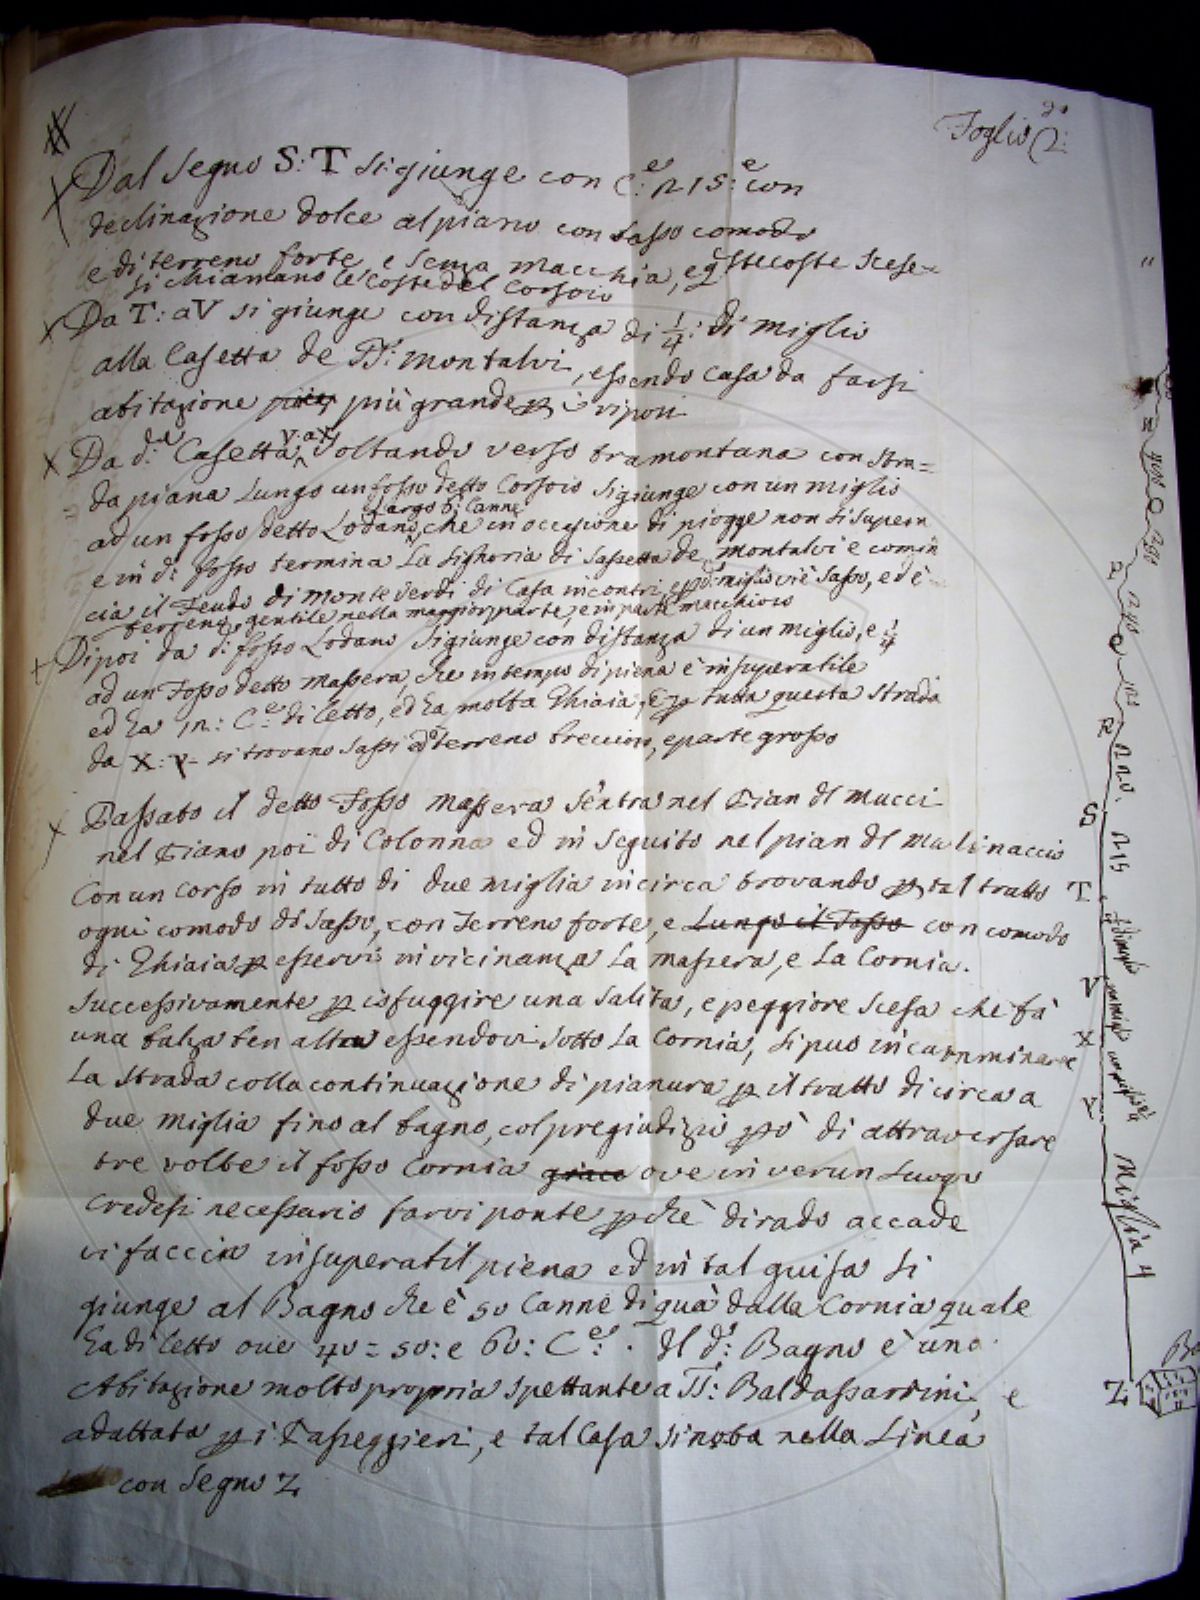 Foglio 2:
Dal Segno S: T si giunge con C:e n 15: e con
declinazione dolce al piano con sasso comodo
e di terreno forte e senza macchia, e q.ste coste scese=
si chiamano le Coste del Corsoio
Da T: a V si giunge con distanza di 1/4: di miglio
alla Casetta de SS:i Montalvi, essendo Casa da farsi
abitazione più grande p i riposi
Da d:a Casetta V: a X voltando verso tramontana con stra=
da piana lungo un fosso detto Corsoio si giunge con un miglio
ad un fosso detto Lodano, Largo 6: Canne che in occasione di piogge non si supera
e in d:o fosso termina La Signoria di Sassetta de Montalvi e comin
cia il Feudo di Monte Verdi di Casa incontri, e p d.o miglio vi è Sasso, ed è
terreno gentile nella maggior parte, e in parte macchioso
Di poi da d:o fosso Lodano si giunge con distanza di un miglio, e 1/4
ad un Fosso detto Massera, che in tempo di piena è insuperabile
ed ha 12: C:e di letto, ed ha molta Ghiaia, e p tutta questa strada
da X: Y si trovano Sassi ed terreno breccioso, e parte grosso
Passato il detto Fosso Massera s'entra nel Pian dl Mucci
nel Piano poi di Colonna ed in seguito nel pian dl Mulinaccio
Con un Corso in tutto di due miglia incirca trovando p tal tratto
ogni comodo di Sasso, con Terreno forte, e Lungo il Fosso con comodo
di Ghiaia p esservi in vicinanza La Massera, e La Cornia.
Successivamente p isfuggire una salita, e peggiore scesa che fà
una balza ben alta essendovi sotto la Cornia, si può incamminare
La strada colla continuazione di pianura p il tratto di circa a
due miglia fino al bagno, col pregiudizio pò di attraversare
tre volte il fosso Cornia ove in verun Luogo
credesi necessario farvi ponte p chè di rado accade
vi faccia insuperabil piena ed in tal guisa si
giunge al Bagno che è 50 Canne di quà dalla Cornia quale
ha di letto ove 40= 50: e 60: C:e. Il d:o Bagno è una
Abitazione molto propria spettante a SS:i Baldassarrini, e
adattata p i Passeggieri, e tal Casa si noba nella Linea
con Segno Z
P
Q
R
n 20.
S
n 15
T
1/4 di miglio
V
un miglio
X
un miglio e 1/4
Y
Miglia 4
Z